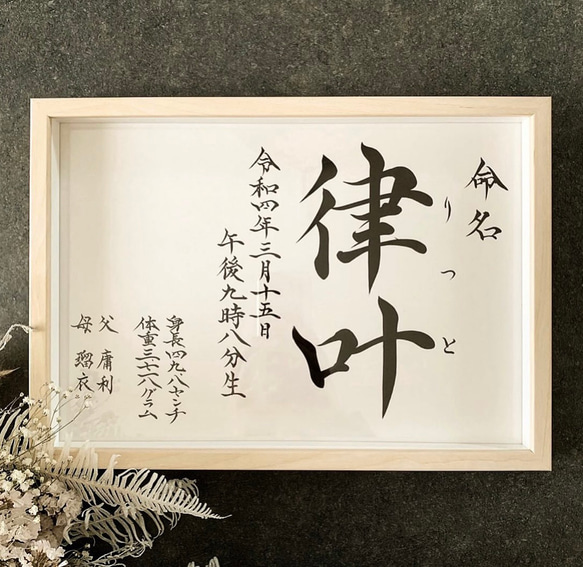 命名
りっと
律叶
令和四年三月十五日
午後九時八分生
身長四九・八センチ
体重三一六八グラム
父 庸利
母 瑠衣